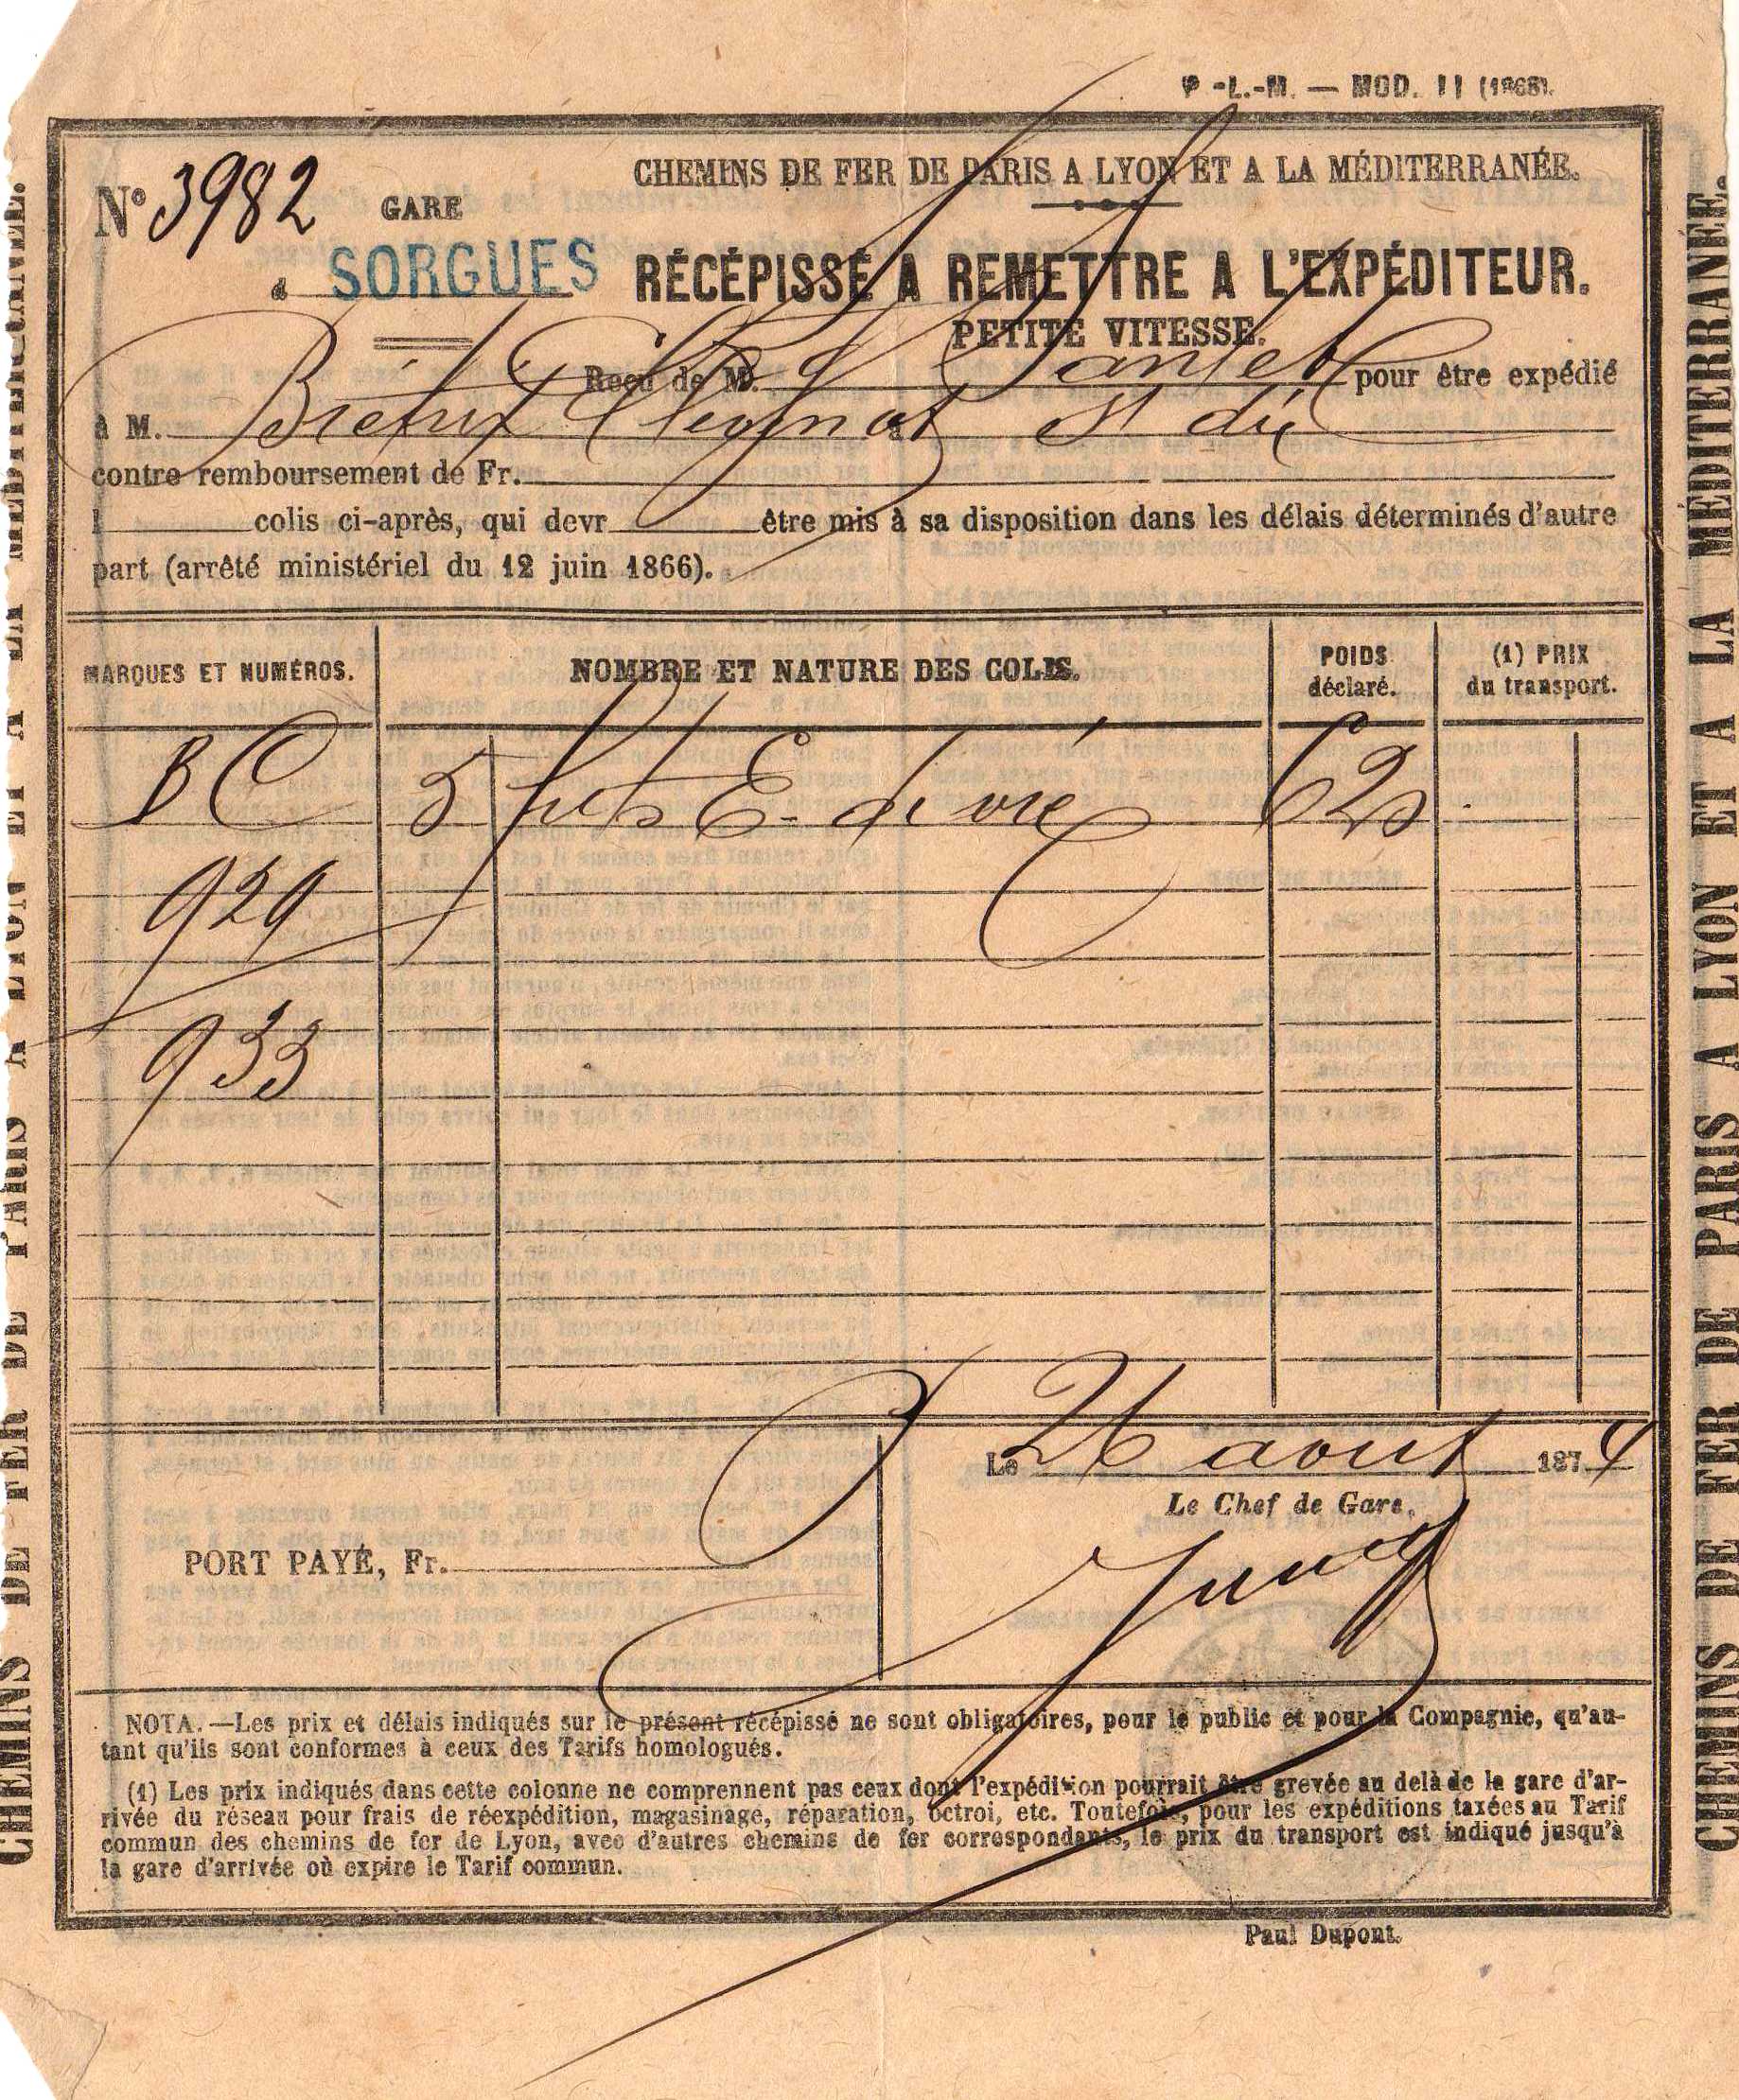 P.-L.-M. — MOD. 11 (1868).
CHEMINS DE FER DE PARIS A LYON ET A LA MÉDITERRANÉE.
N° 3982 GARE
d SORGUES
RÉCÉPISSÉ A REMETTRE A L'EXPÉDITEUR.
PETITE VITESSE.
Reçu de M. pour être expédié
à M. St dié
contre remboursement de Fr.
l colis ci-après, qui devr être mis à sa disposition dans les délais déterminés d'autre
part (arrêté ministériel du 12 juin 1866).
MARQUES ET NUMÉROS. NOMBRE ET NATURE DES COLIS. POIDS déclaré. (1) PRIX du transport.
BC 5 futs E. de vie
929
933
Le 26 aout 1874
Le Chef de Gare,
PORT PAYÉ, Fr.
NOTA.—Les prix et délais indiqués sur le présent récépissé ne sont obligatoires, pour le public et pour la Compagnie, qu'au-
tant qu'ils sont conformes à ceux des Tarifs homologués.
(1) Les prix indiqués dans cette colonne ne comprennent pas ceux dont l'expédition pourrait être grevée au delà de la gare d'ar-
rivée du réseau pour frais de réexpédition, magasinage, réparation, octroi, etc. Toutefois, pour les expéditions taxées au Tarif
commun des chemins de fer de Lyon, avec d'autres chemins de fer correspondants, le prix du transport est indiqué jusqu'à
la gare d'arrivée où expire le Tarif commun.
Paul Dupont.
CHEMINS DE FER DE PARIS A LYON ET A LA MÉDITERRANÉE.
CHEMINS DE FER DE PARIS A LYON ET A LA MÉDITERRANÉE.